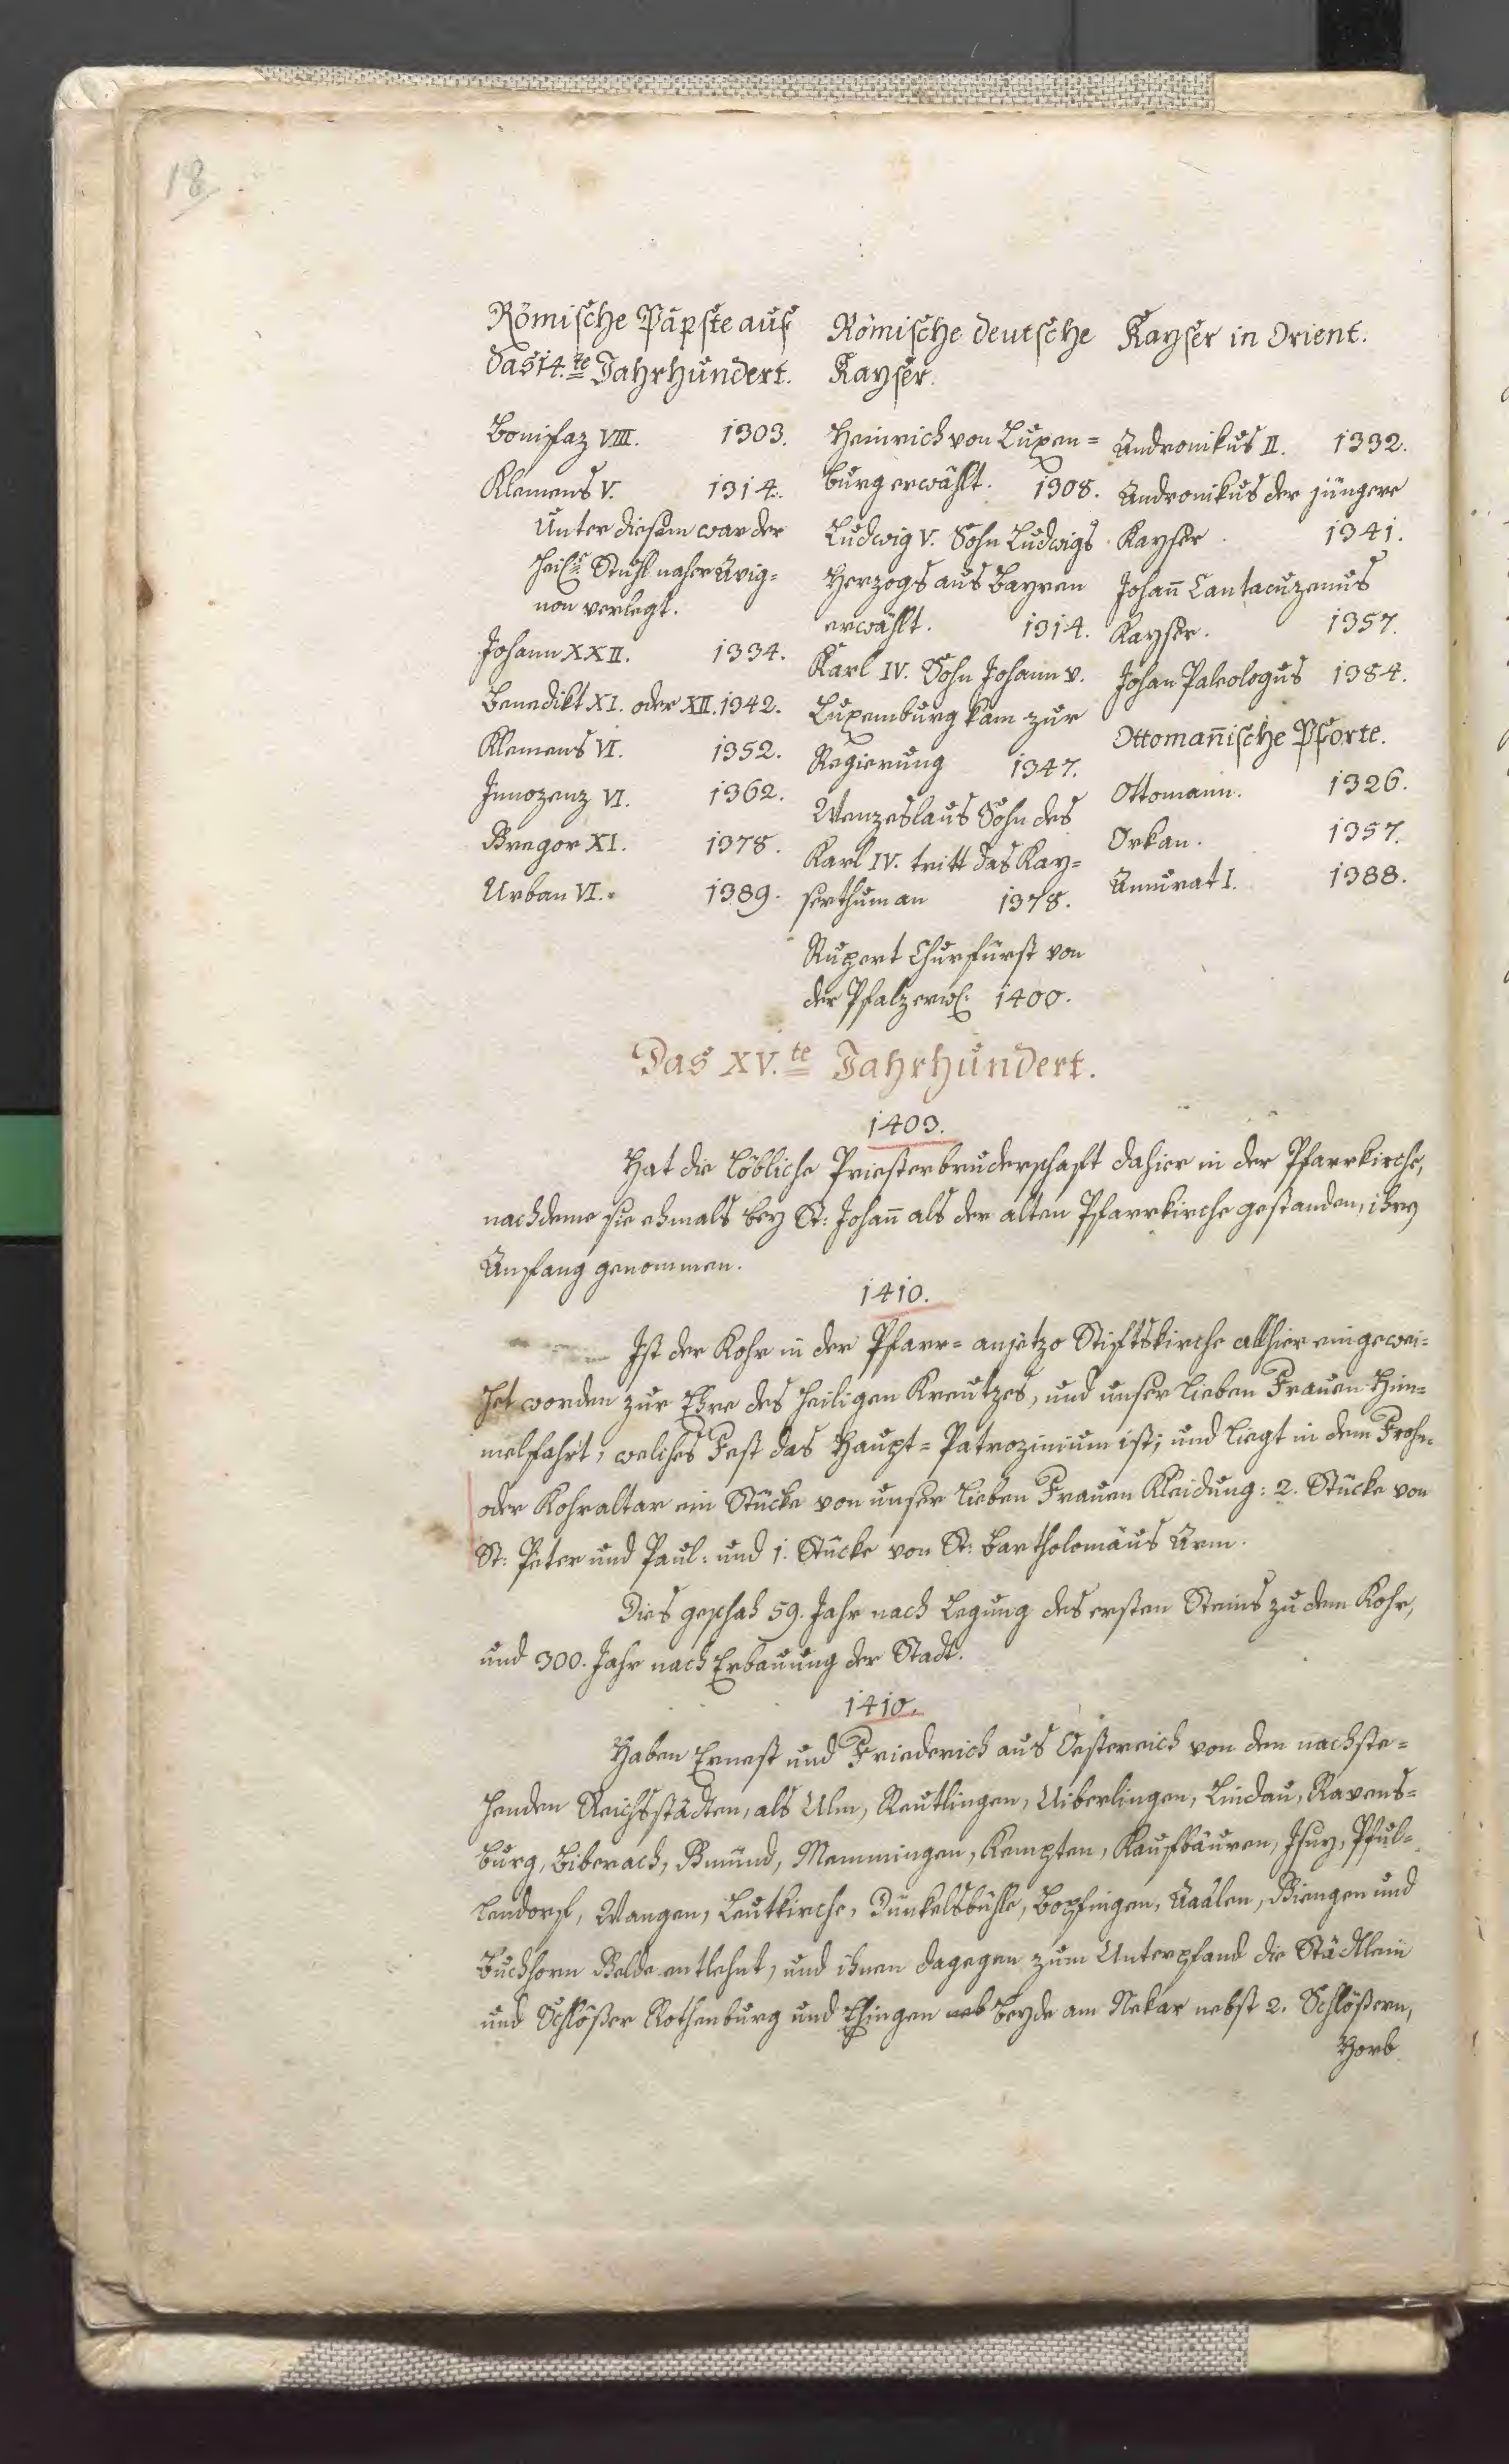 18
Römische Päpste auf
das 14.te Jahrhundert.
Bonifaz VIII. 1303.
Klemens V. 1314.
Unter diesem war der
heil. Stuhl naher Avig=
non verlegt.
Johann XXII. 1334.
Benedikt XI. oder XII. 1342.
Klemens VI. 1352.
Innozenz VI. 1362.
Gregor XI. 1378.
Urban VI. 1389.
Römische deutsche
Kayser.
Heinrich von Luxem=
burg erwählt. 1308.
Ludwig V. Sohn Ludwigs
Herzogs aus Bayren
erwählt. 1314.
Karl IV. Sohn Johann v.
Luxemburg kam zur
Regierung 1347.
Wenzeslaus Sohn des
Karl IV. tritt das Kay=
serthum an 1378.
Rupert Churfürst von
der Pfalz erwl. 1400.
Kayser in Orient.
Andronikus II. 1332.
Andronikus der jüngere
Kayser 1341.
Johan̄ Cantacuzenus
Kayser. 1357.
Johan Paleologus 1384.
Ottoman̄ische Pforte.
Ottomann. 1326.
Orkan. 1357.
Amurat I. 1388.
Das XV.te Jahrhundert.
1403.
Hat die löbliche Priesterbruderschaft dahier in der Pfarrkirche,
nachdeme sie ehmals bey St: Johan̄ als der alten Pfarrkirche gestanden, ihren
Anfang genommen.
1410.
Ist der Kohr in der Pfarr= anjetzo Stiftskirche allhier eingewei=
het worden zur Ehre des heiligen Kreutzes, und unser lieben Frauen Him=
melfahrt, welches Fest das Haupt=Patrozinium ist; und liegt in dem Frohn=
oder Kohraltar ein Stücke von unser lieben Frauen Kleidung: 2. Stücke von
St: Peter und Paul: und 1. Stücke von St: Bartholomäus Arm.
Dies geschah 59. Jahr nach Legung des ersten Steins zu dem Kohr,
und 300. Jahr nach Erbauung der Stadt.
1410.
Haben Ernest und Friederich aus Oestereich von den nachste=
henden Reichsstädten, als Ulm, Reutlingen, Uiberlingen, Lindau, Ravens=
burg, Biberach, Gmünd, Memmingen, Kempten, Kaufbäuren, Isny, Pful=
lendorf, Wangen, Leutkirche, Dünkelsbühle, Bopfingen, Aaalen, Giengen und
Buchhorn Gelde entlehnt, und ihnen dagegen zum Unterpfand die Städtlein
und Schlößer Rothenburg und Ehingen beyde am Nekar nebst 2. Schlößern,
Horb